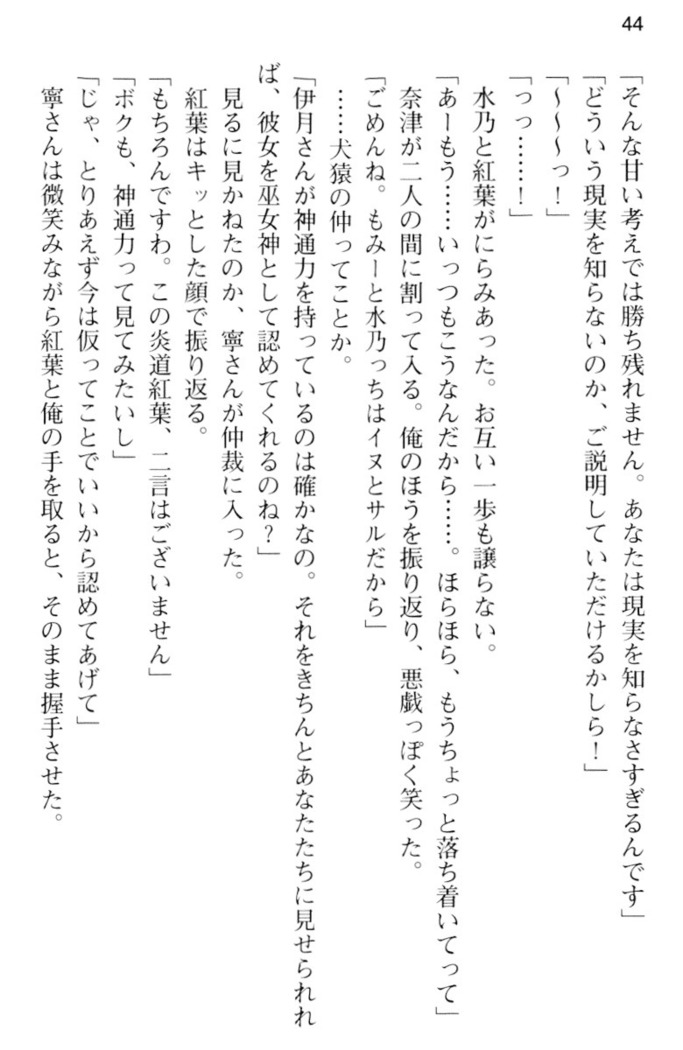 44
「そんな甘い考えでは勝ち残れません。あなたは現実を知らなさすぎるんです」
「どういう現実を知らないのか、ご説明していただけるかしら！」
「～～～っ！」
「っっ……！」
水乃と紅葉がにらみあった。お互い一歩も譲らない。
「あーもう……いっつもこうなんだから……。ほらほら、もうちょっと落ち着いてって」
奈津が二人の間に割って入る。俺のほうを振り返り、悪戯っぽく笑った。
「ごめんね。もみーと水乃っちはイヌとサルだから」
……犬猿の仲ってことか。
「伊月さんが神通力を持っているのは確かなの。それをきちんとあなたたちに見せられれ
ば、彼女を巫女神として認めてくれるのね？」
見るに見かねたのか、寧さんが仲裁に入った。
紅葉はキッとした顔で振り返る。
「もちろんですわ。この炎道紅葉、二言はございません」
「ボクも、神通力って見てみたいし」
「じゃ、とりあえず今は仮ってことでいいから認めてあげて」
寧さんは微笑みながら紅葉と俺の手を取ると、そのまま握手させた。